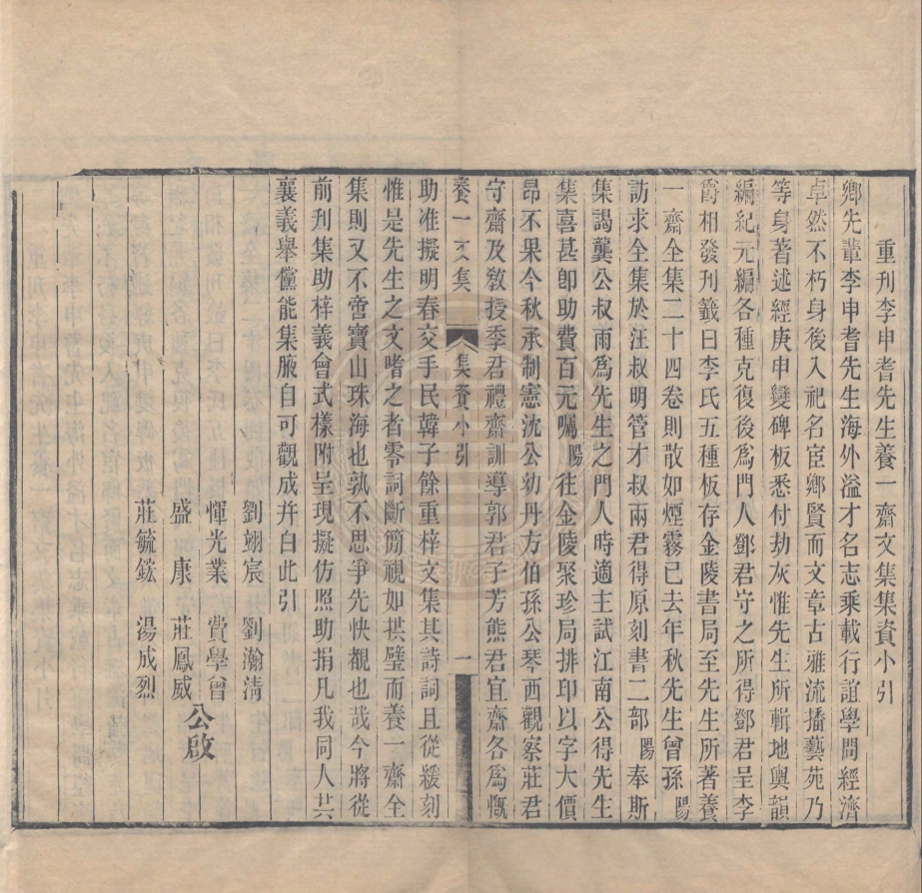 重刊李申耆先生養一齋文集集資小引
鄉先輩李申耆先生海外溢才名志乘載行誼學問經濟
卓然不朽身後入祀名宦鄉賢而文章古雅流播藝苑乃
等身著述經庚申變碑板悉付劫灰惟先生所輯地輿韻
編紀元編各種克復後為門人鄧君守之所得鄧君呈李
爵相發刊籤曰李氏五種板存金陵書局至先生所著養
一齋全集二十四卷則散如煙霧已去年秋先生曾孫陽
訪求全集於汪叔明管才叔兩君得原刻書二部陽奉斯
集謁龔公叔雨為先生之門人時適主試江南公得先生
集喜甚卽助費百元囑陽往金陵聚珍局排印以字大價
昂不果今秋承制憲沈公幼丹方伯孫公琴西觀察莊君
守齋及敎授季君禮齋訓導郭君子芳熊君宜齋各為慨
養一齋文集 集資小引 一
助准擬明春交手民韓子餘重梓文集其詩詞且從緩刻
惟是先生之文嗜之者零詞斷簡視如拱璧而養一齋全
集則又不啻寶山珠海也孰不思爭先快覩也哉今將從
前刋集助梓義會式樣附呈現擬仿照助捐凡我同人共
襄義舉儻能集腋自可觀成幷白此引
劉翊宸 劉瀚清
惲光業 費學曾
盛康 莊鳳威 公啟
莊毓鋐 湯成烈